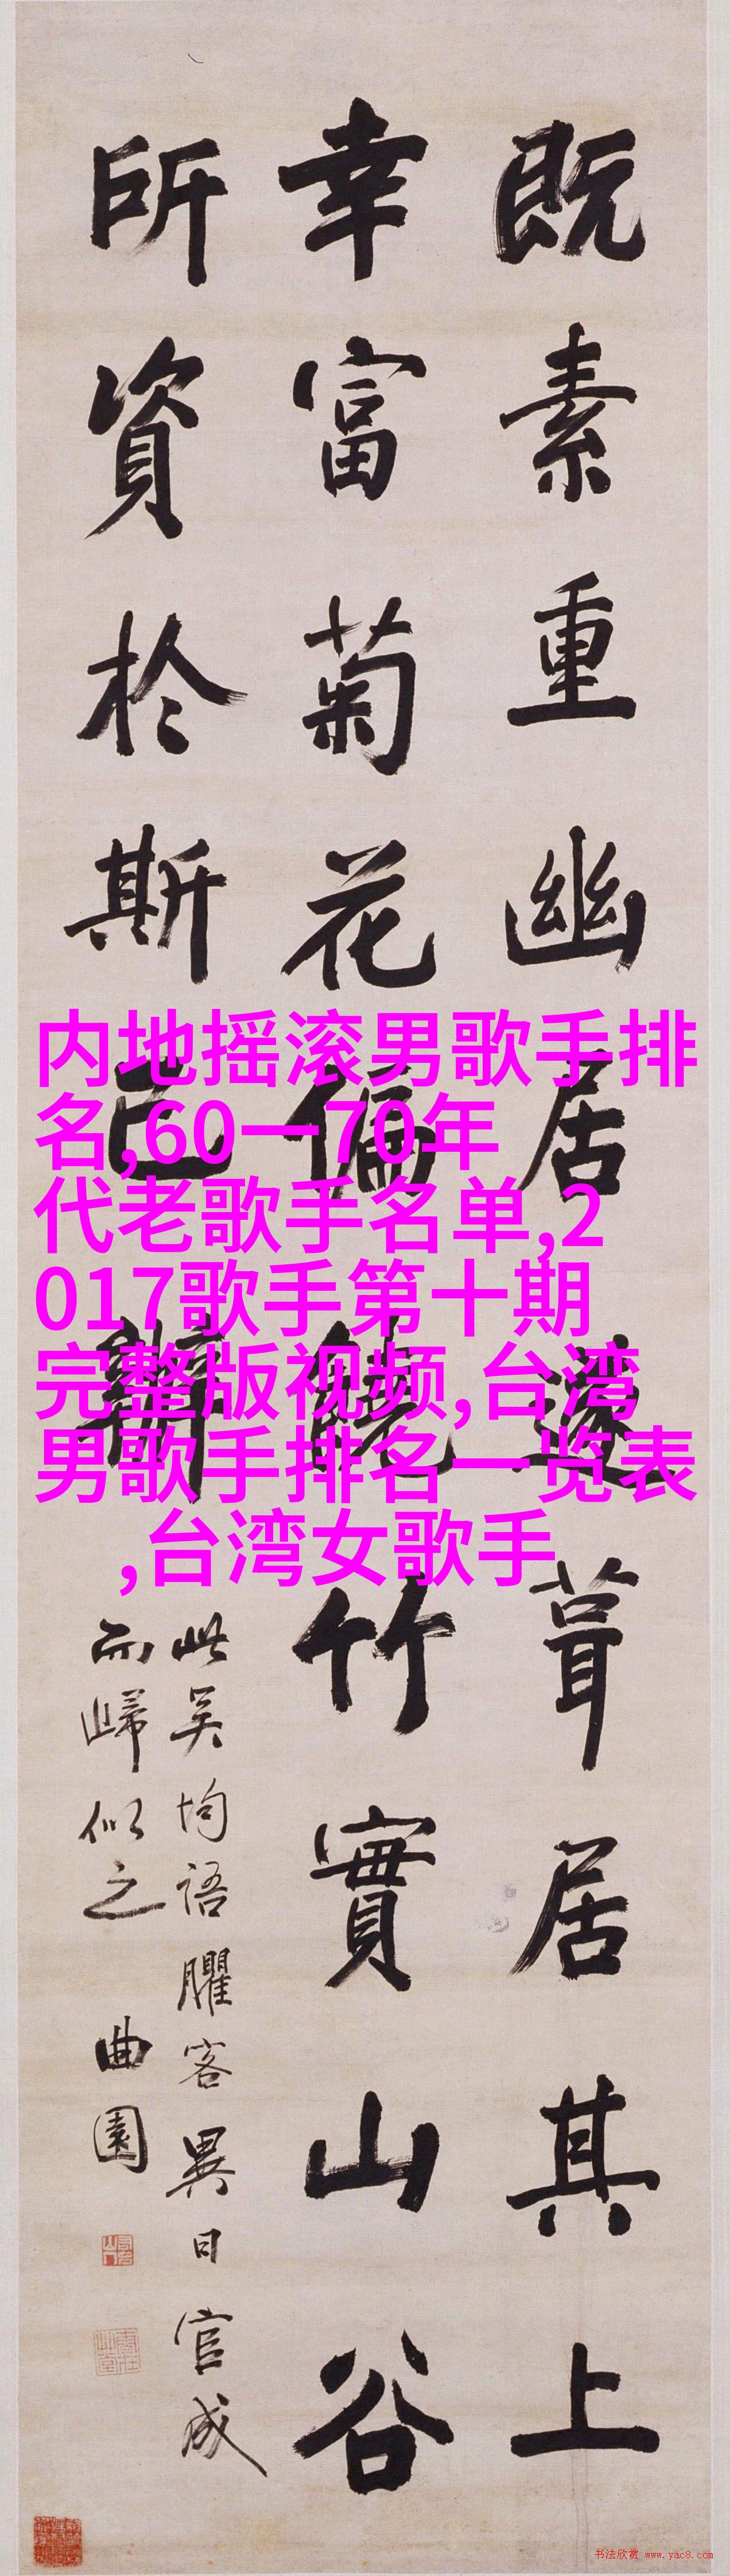 既素重幽居遂葺居其上
幸富菊花偏饒竹實山谷
所資於斯已辦
此吴均语臞客異日官成
而歸似之
曲園
内地摇滚男歌手排
名,60一70年
代老歌手名单,2
017歌手第十期
完整版视频,台湾
男歌手排名一览表
,台湾女歌手
书法欣赏 www.yac8.com